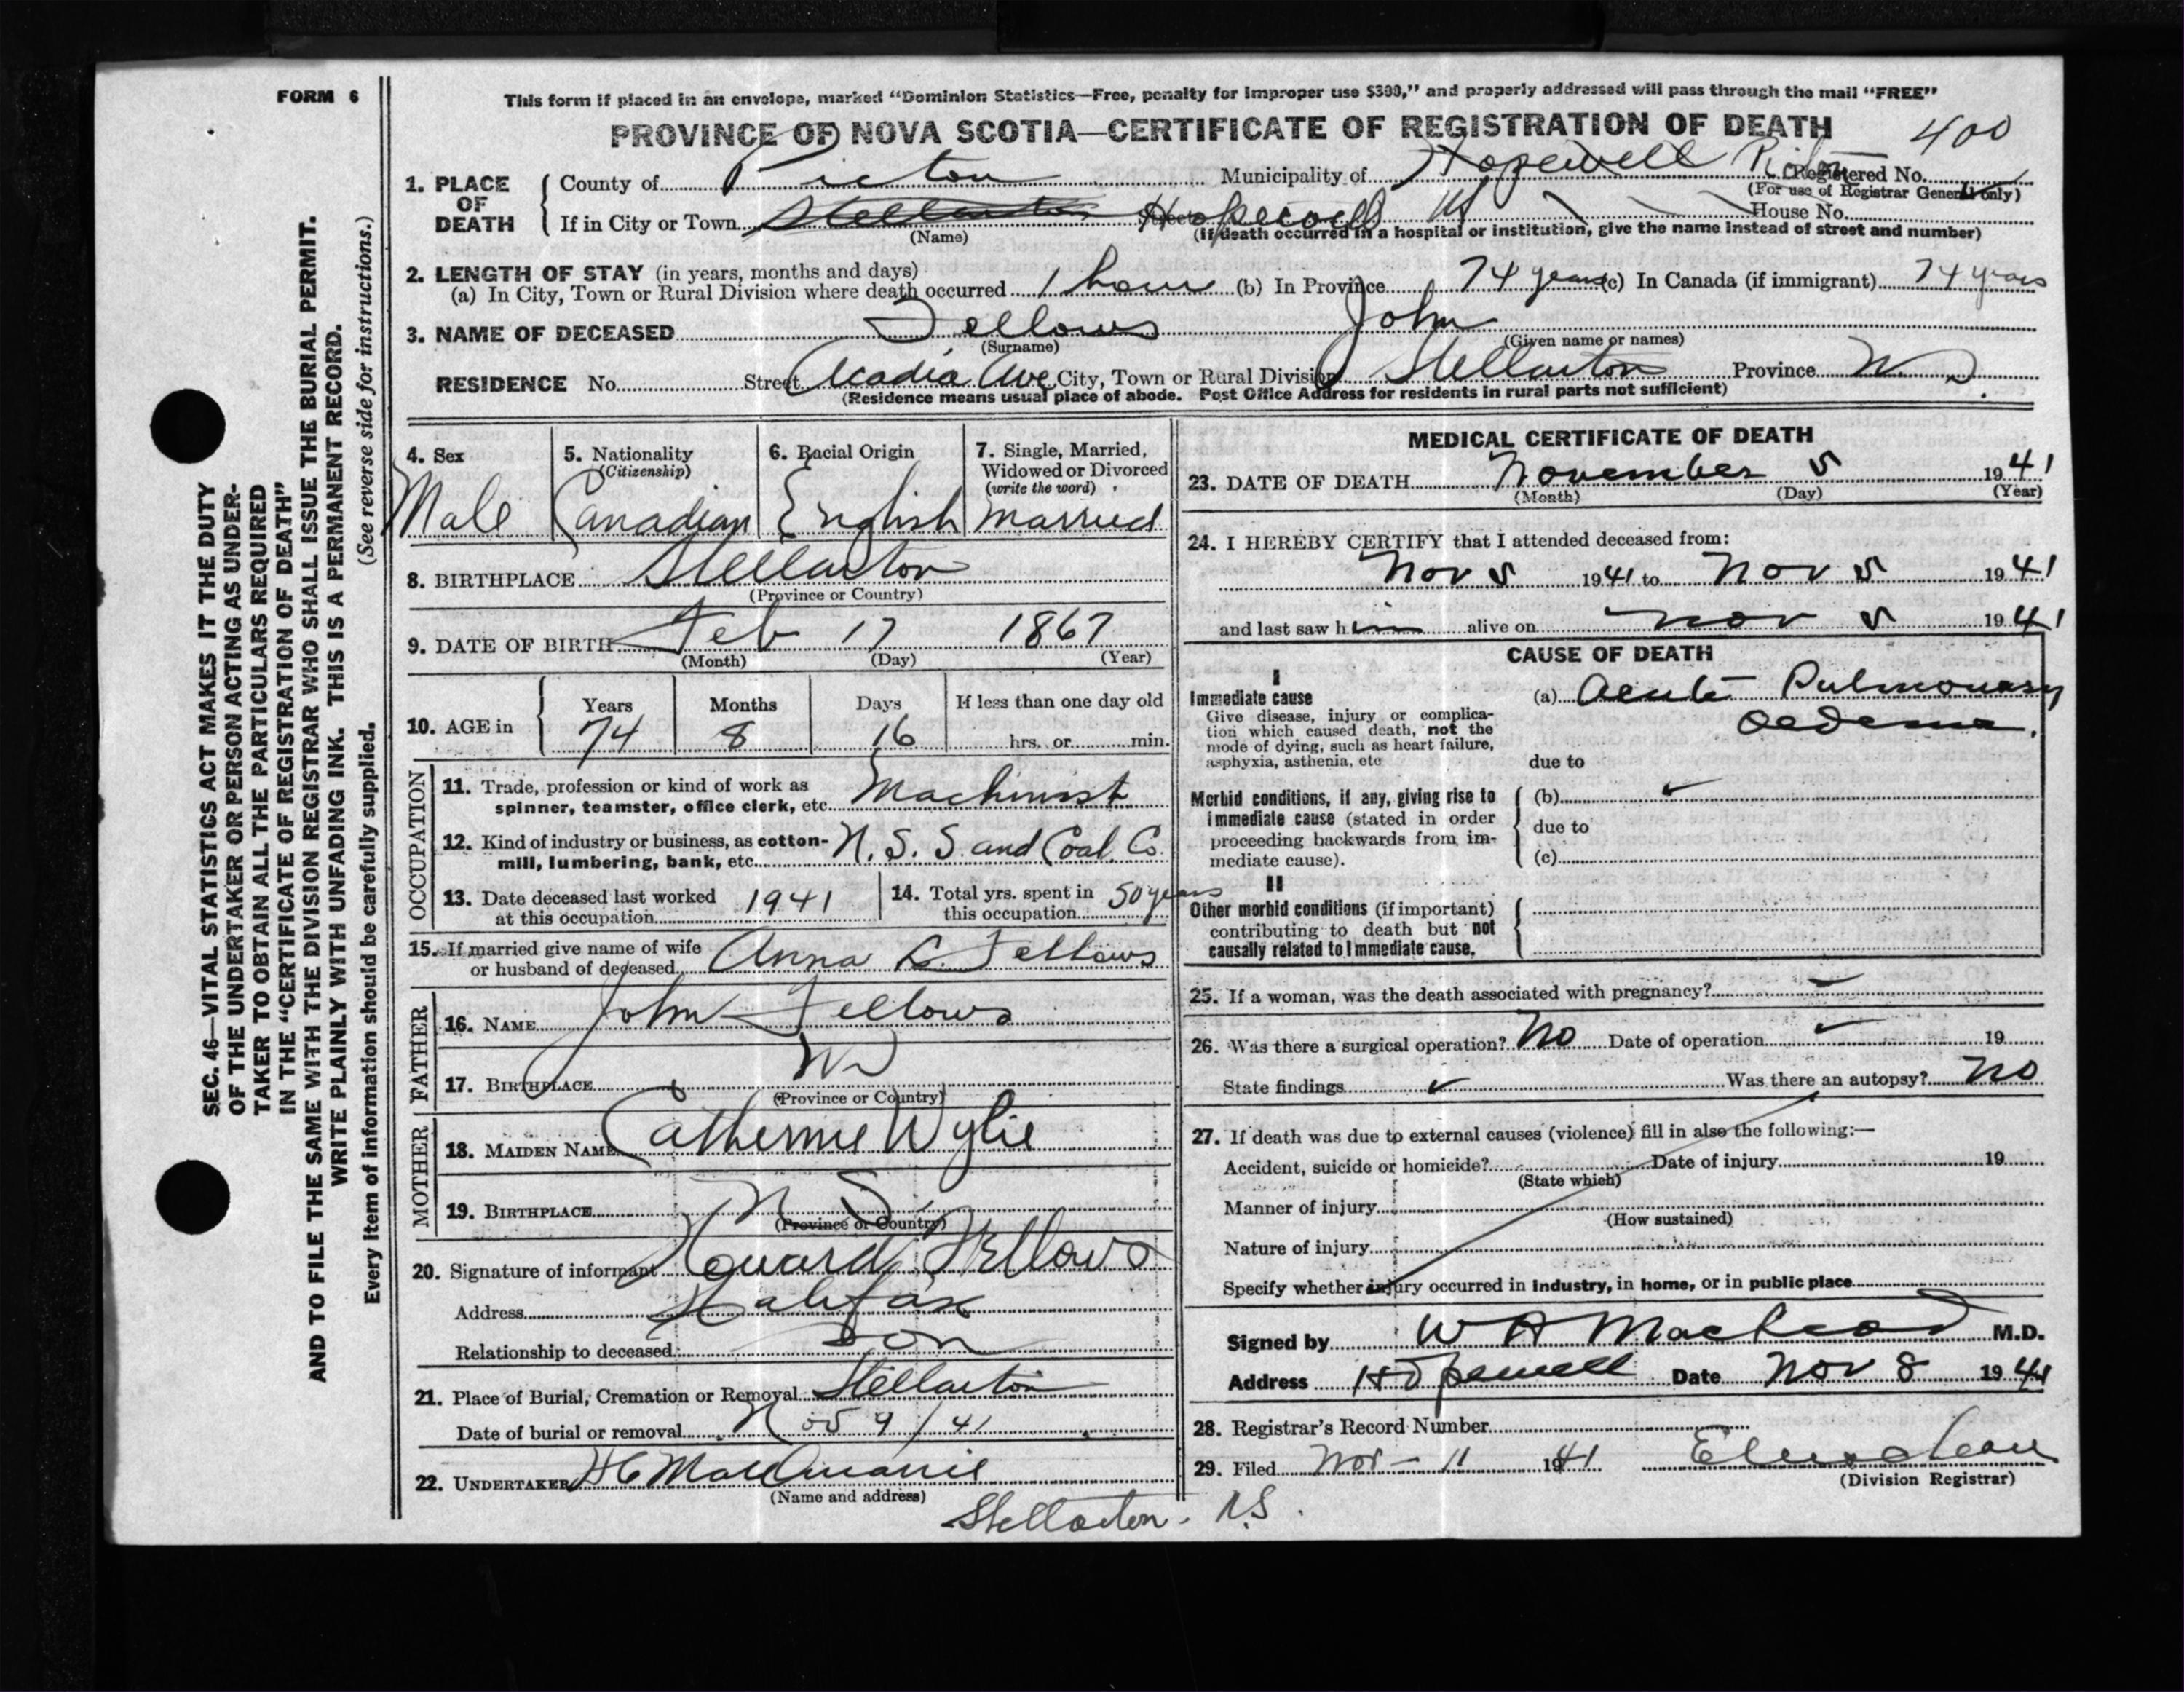 FORM 6
This form if placed in an envelope, marked "Dominion Statistics—Free, penalty for improper use $300," and properly addressed will pass through the mail "FREE"
PROVINCE OF NOVA SCOTIA—CERTIFICATE OF REGISTRATION OF DEATH 400
1. PLACE OF DEATH
County of Pictou Municipality of Hopewell Pictou Registered No.
(For use of Registrar General only)
If in City or Town Stellarton Street Hopewell NS House No.
(Name) (If death occurred in a hospital or institution, give the name instead of street and number)
2. LENGTH OF STAY (in years, months and days)
(a) In City, Town or Rural Division where death occurred 1 hour (b) In Province 74 years (c) In Canada (if immigrant) 74 years
3. NAME OF DECEASED Fellows John
(Surname) (Given name or names)
RESIDENCE No. Street Acadia Ave City, Town or Rural Division Stellarton Province N.S.
(Residence means usual place of abode. Post Office Address for residents in rural parts not sufficient)
4. Sex
Male
5. Nationality
(Citizenship)
Canadian
6. Racial Origin
English
7. Single, Married,
Widowed or Divorced
(write the word)
Married
8. BIRTHPLACE Stellarton
(Province or Country)
9. DATE OF BIRTH Feb 17 1867
(Month) (Day) (Year)
10. AGE in
Years Months Days If less than one day old
74 8 16 hrs. or min.
OCCUPATION
11. Trade, profession or kind of work as
spinner, teamster, office clerk, etc. Machinist
12. Kind of industry or business, as cotton-
mill, lumbering, bank, etc. N. S. S. and Coal Co.
13. Date deceased last worked
at this occupation 1941
14. Total yrs. spent in
this occupation 50 years
15. If married give name of wife
or husband of deceased Anna Fellows
FATHER
16. NAME John Fellows
17. BIRTHPLACE NS
(Province or Country)
MOTHER
18. MAIDEN NAME Catherine Wylie
19. BIRTHPLACE N S
(Province or Country)
20. Signature of informant Howard Fellows
Address Halifax
Relationship to deceased Son
21. Place of Burial, Cremation or Removal Stellarton
Date of burial or removal Nov 9/41
22. UNDERTAKER
(Name and address)
Stellarton. N.S.
MEDICAL CERTIFICATE OF DEATH
23. DATE OF DEATH November 5 1941
(Month) (Day) (Year)
24. I HEREBY CERTIFY that I attended deceased from:
Nov 5 1941 to Nov 5 1941
and last saw him alive on Nov 5 1941
CAUSE OF DEATH
I
Immediate cause
Give disease, injury or complica-
tion which caused death, not the
mode of dying, such as heart failure,
asphyxia, asthenia, etc
(a) Acute Pulmonary
Oedema.
due to
Morbid conditions, if any, giving rise to
immediate cause (stated in order
proceeding backwards from im-
mediate cause).
(b)
due to
(c)
II
Other morbid conditions (if important)
contributing to death but not
causally related to immediate cause.
25. If a woman, was the death associated with pregnancy?
26. Was there a surgical operation? No Date of operation 19
State findings Was there an autopsy? No
27. If death was due to external causes (violence) fill in also the following:—
Accident, suicide or homicide? Date of injury 19
(State which)
Manner of injury
(How sustained)
Nature of injury
Specify whether injury occurred in industry, in home, or in public place
Signed by W A MacLeod M.D.
Address Hopewell Date Nov 8 1941
28. Registrar's Record Number
29. Filed Nov - 11 1941
(Division Registrar)
SEC. 46—VITAL STATISTICS ACT MAKES IT THE DUTY
OF THE UNDERTAKER OR PERSON ACTING AS UNDER-
TAKER TO OBTAIN ALL THE PARTICULARS REQUIRED
IN THE "CERTIFICATE OF REGISTRATION OF DEATH"
AND TO FILE THE SAME WITH THE DIVISION REGISTRAR WHO SHALL ISSUE THE BURIAL PERMIT.
WRITE PLAINLY WITH UNFADING INK. THIS IS A PERMANENT RECORD.
Every item of information should be carefully supplied. (See reverse side for instructions.)